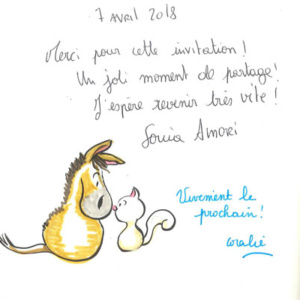 7 avril 2018
Merci pour cette invitation !
Un joli moment de partage !
J'espère revenir très vite !
Sonia Amori
Vivement le
prochain !
coralie